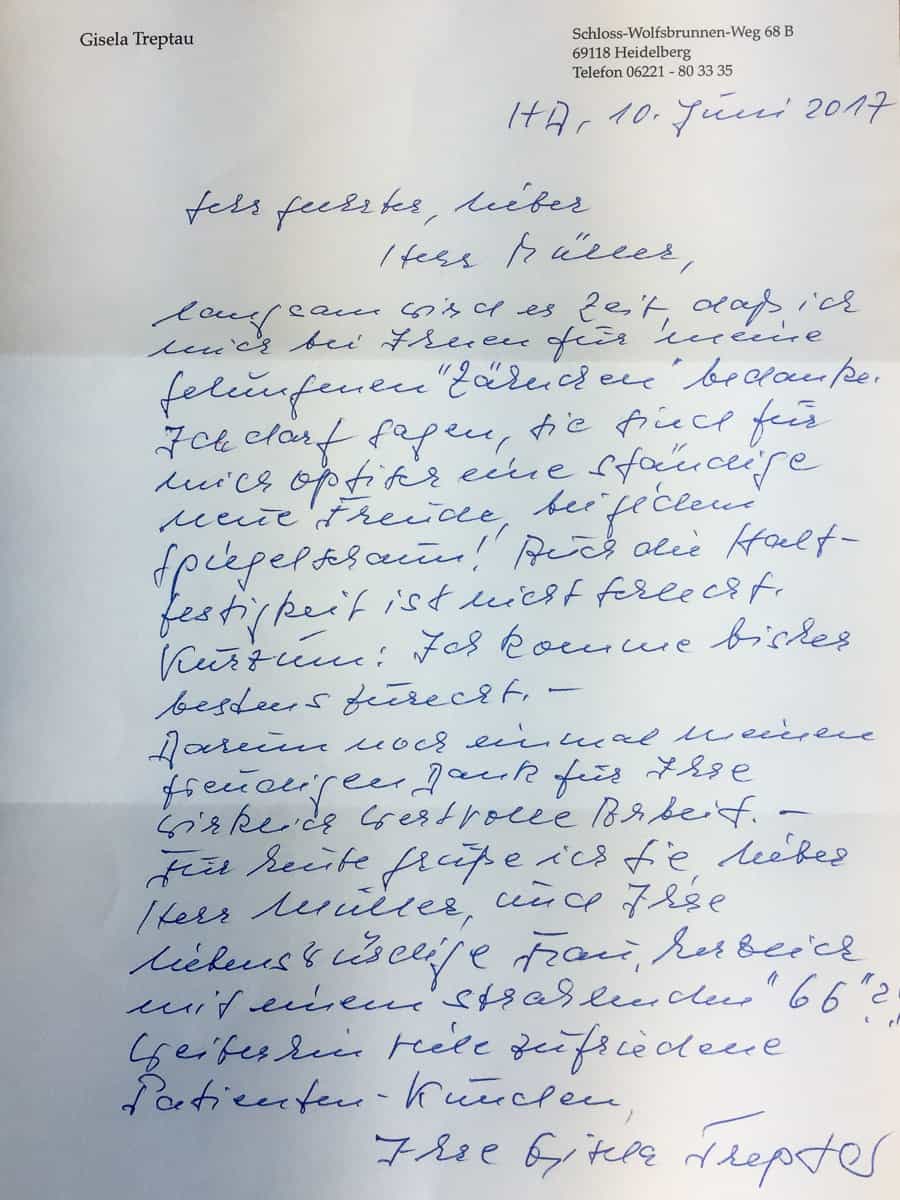 Gisela Treptau
Schloss-Wolfsbrunnen-Weg 68 B
69118 Heidelberg
Telefon 06221 - 80 33 35
HD, 10. Juni 2017
Sehr geehrter, lieber
Herr Müller,
langsam wird es Zeit, daß ich
mich bei Ihnen für meine
gelungenen "Zähnchen" bedanke.
Ich darf sagen, sie sind für
mich optisch eine ständige
neue Freude, bei jedem
Spiegelschaun! Auch die Halt-
festigkeit ist nicht schlecht.
Kurzum: Ich komme bisher
bestens zurecht. –
Darum noch einmal meinen
freudigen Dank für Ihre
wirklich wertvolle Arbeit. –
Für heute grüße ich Sie, lieber
Herr Müller, und Ihre
liebenswürdige Frau, herzlich
mit einem strahlenden "66"?!
Weiterhin viele zufriedene
Patienten-Kunden,
Ihre Gisela Treptau